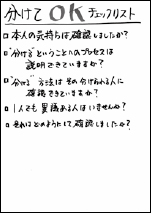 分けて OK チェックリスト
□ 本人の気持ちは確認しましたか?
□ "分ける"ということへのプロセスは
説明できていますか?
□ "分ける"方法はその分けられる人に
確認できていますか?
□ 1人でも異議ある人はいませんか?
□ それはどのようにして確認しましたか?